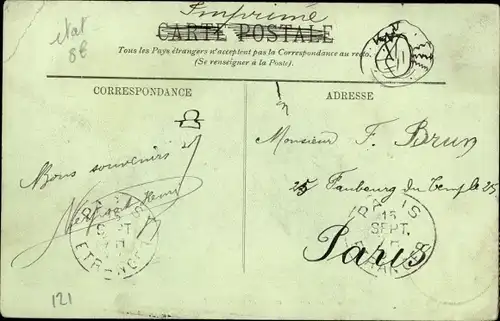 Imprimé
état
8E
CARTE POSTALE
Tous les Pays étrangers n'acceptent pas la Correspondance au recto.
(Se renseigner à la Poste).
CORRESPONDANCE
ADRESSE
Bons souvenirs
Monsieur F. Brun
25 Faubourg du Temple 25
Paris
PARIS
SEPT
ETRANGER
PARIS
15
SEPT.
ETRANGER
121